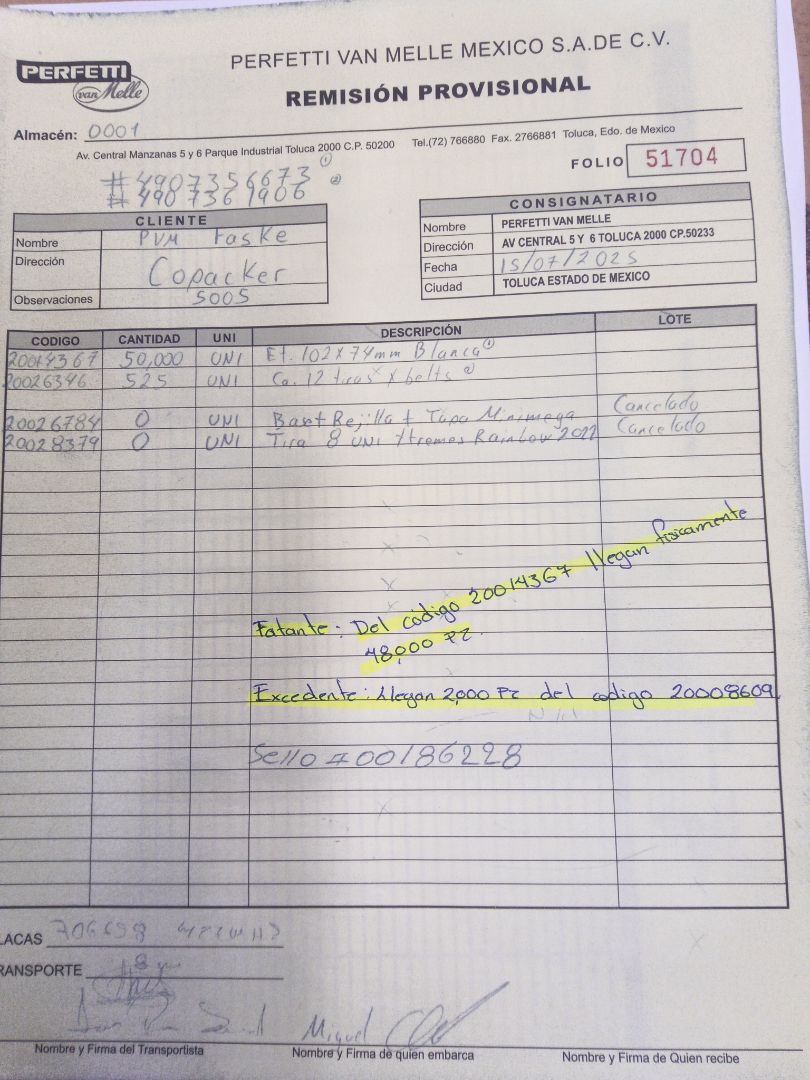 PERFETTI
van Melle
PERFETTI VAN MELLE MEXICO S.A.DE C.V.
REMISIÓN PROVISIONAL
Almacén: 0001
Av. Central Manzanas 5 y 6 Parque Industrial Toluca 2000 C.P. 50200 Tel.(72) 766880 Fax. 2766881 Toluca, Edo. de Mexico
FOLIO 51704
#4907356673 ①
#4907361906 ②
CLIENTE
Nombre PVM Faske
Dirección Copacker
Observaciones 5005
CONSIGNATARIO
Nombre PERFETTI VAN MELLE
Dirección AV CENTRAL 5 Y 6 TOLUCA 2000 CP.50233
Fecha 15/07/2025
Ciudad TOLUCA ESTADO DE MEXICO
CODIGO CANTIDAD UNI DESCRIPCIÓN LOTE
20014367 50,000 UNI Et. 102 X 74mm Blanca ①
20026346 525 UNI Ca. 12 tiras x belts ②
20026784 0 UNI Base Rejilla + Tapa Minimega Cancelado
20028379 0 UNI Tira 8 UNI Xtremes Rainbow 2022 Cancelado
Fatante: Del código 20014367 llegan físicamente
48,000 Pz.
Excedente: Llegan 2,000 Pz del codigo 20008609
Sello #00186228
LACAS
RANSPORTE
Miguel
Nombre y Firma del Transportista
Nombre y Firma de quien embarca
Nombre y Firma de Quien recibe